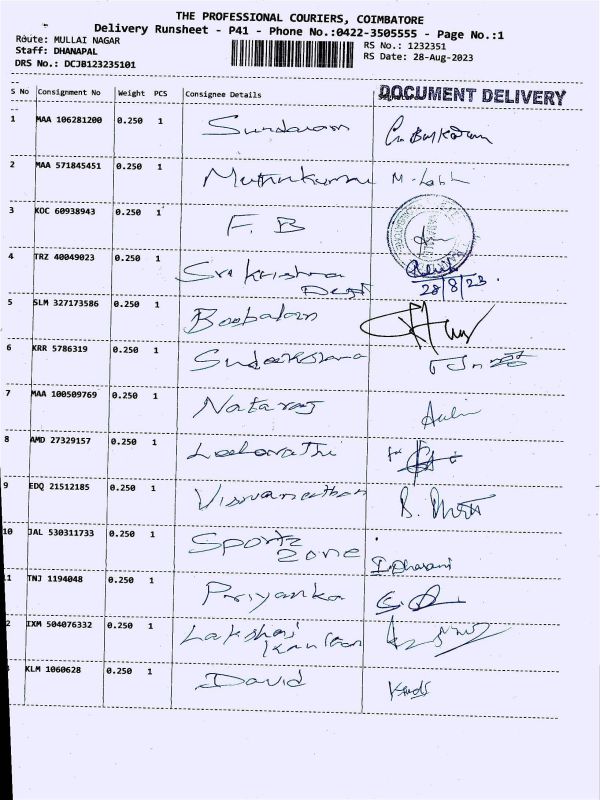 THE PROFESSIONAL COURIERS, COIMBATORE
Delivery Runsheet - P41 - Phone No.:0422-3505555 - Page No.:1
Route: MULLAI NAGAR
Staff: DHANAPAL
DRS No.: DCJB123235101
RS No.: 1232351
RS Date: 28-Aug-2023
S No Consignment No Weight PCS Consignee Details DOCUMENT DELIVERY
1 MAA 106281200 0.250 1 Sundaram
2 MAA 571845451 0.250 1 Muthukumar
3 KOC 60938943 0.250 1 F. B
4 TRZ 40049023 0.250 1 Sri Krishna
Dept 28/8/23
5 SLM 327173586 0.250 1
6 KRR 5786319 0.250 1
7 MAA 100509769 0.250 1 Nataraj
8 AMD 27329157 0.250 1
9 EDQ 21512185 0.250 1 Viswanathan
10 JAL 530311733 0.250 1 Sports
Zone I. Dharani
TNJ 1194048 0.250 1 Priyanka
IXM 504076332 0.250 1 Lakshmi
KLM 1060628 0.250 1 David